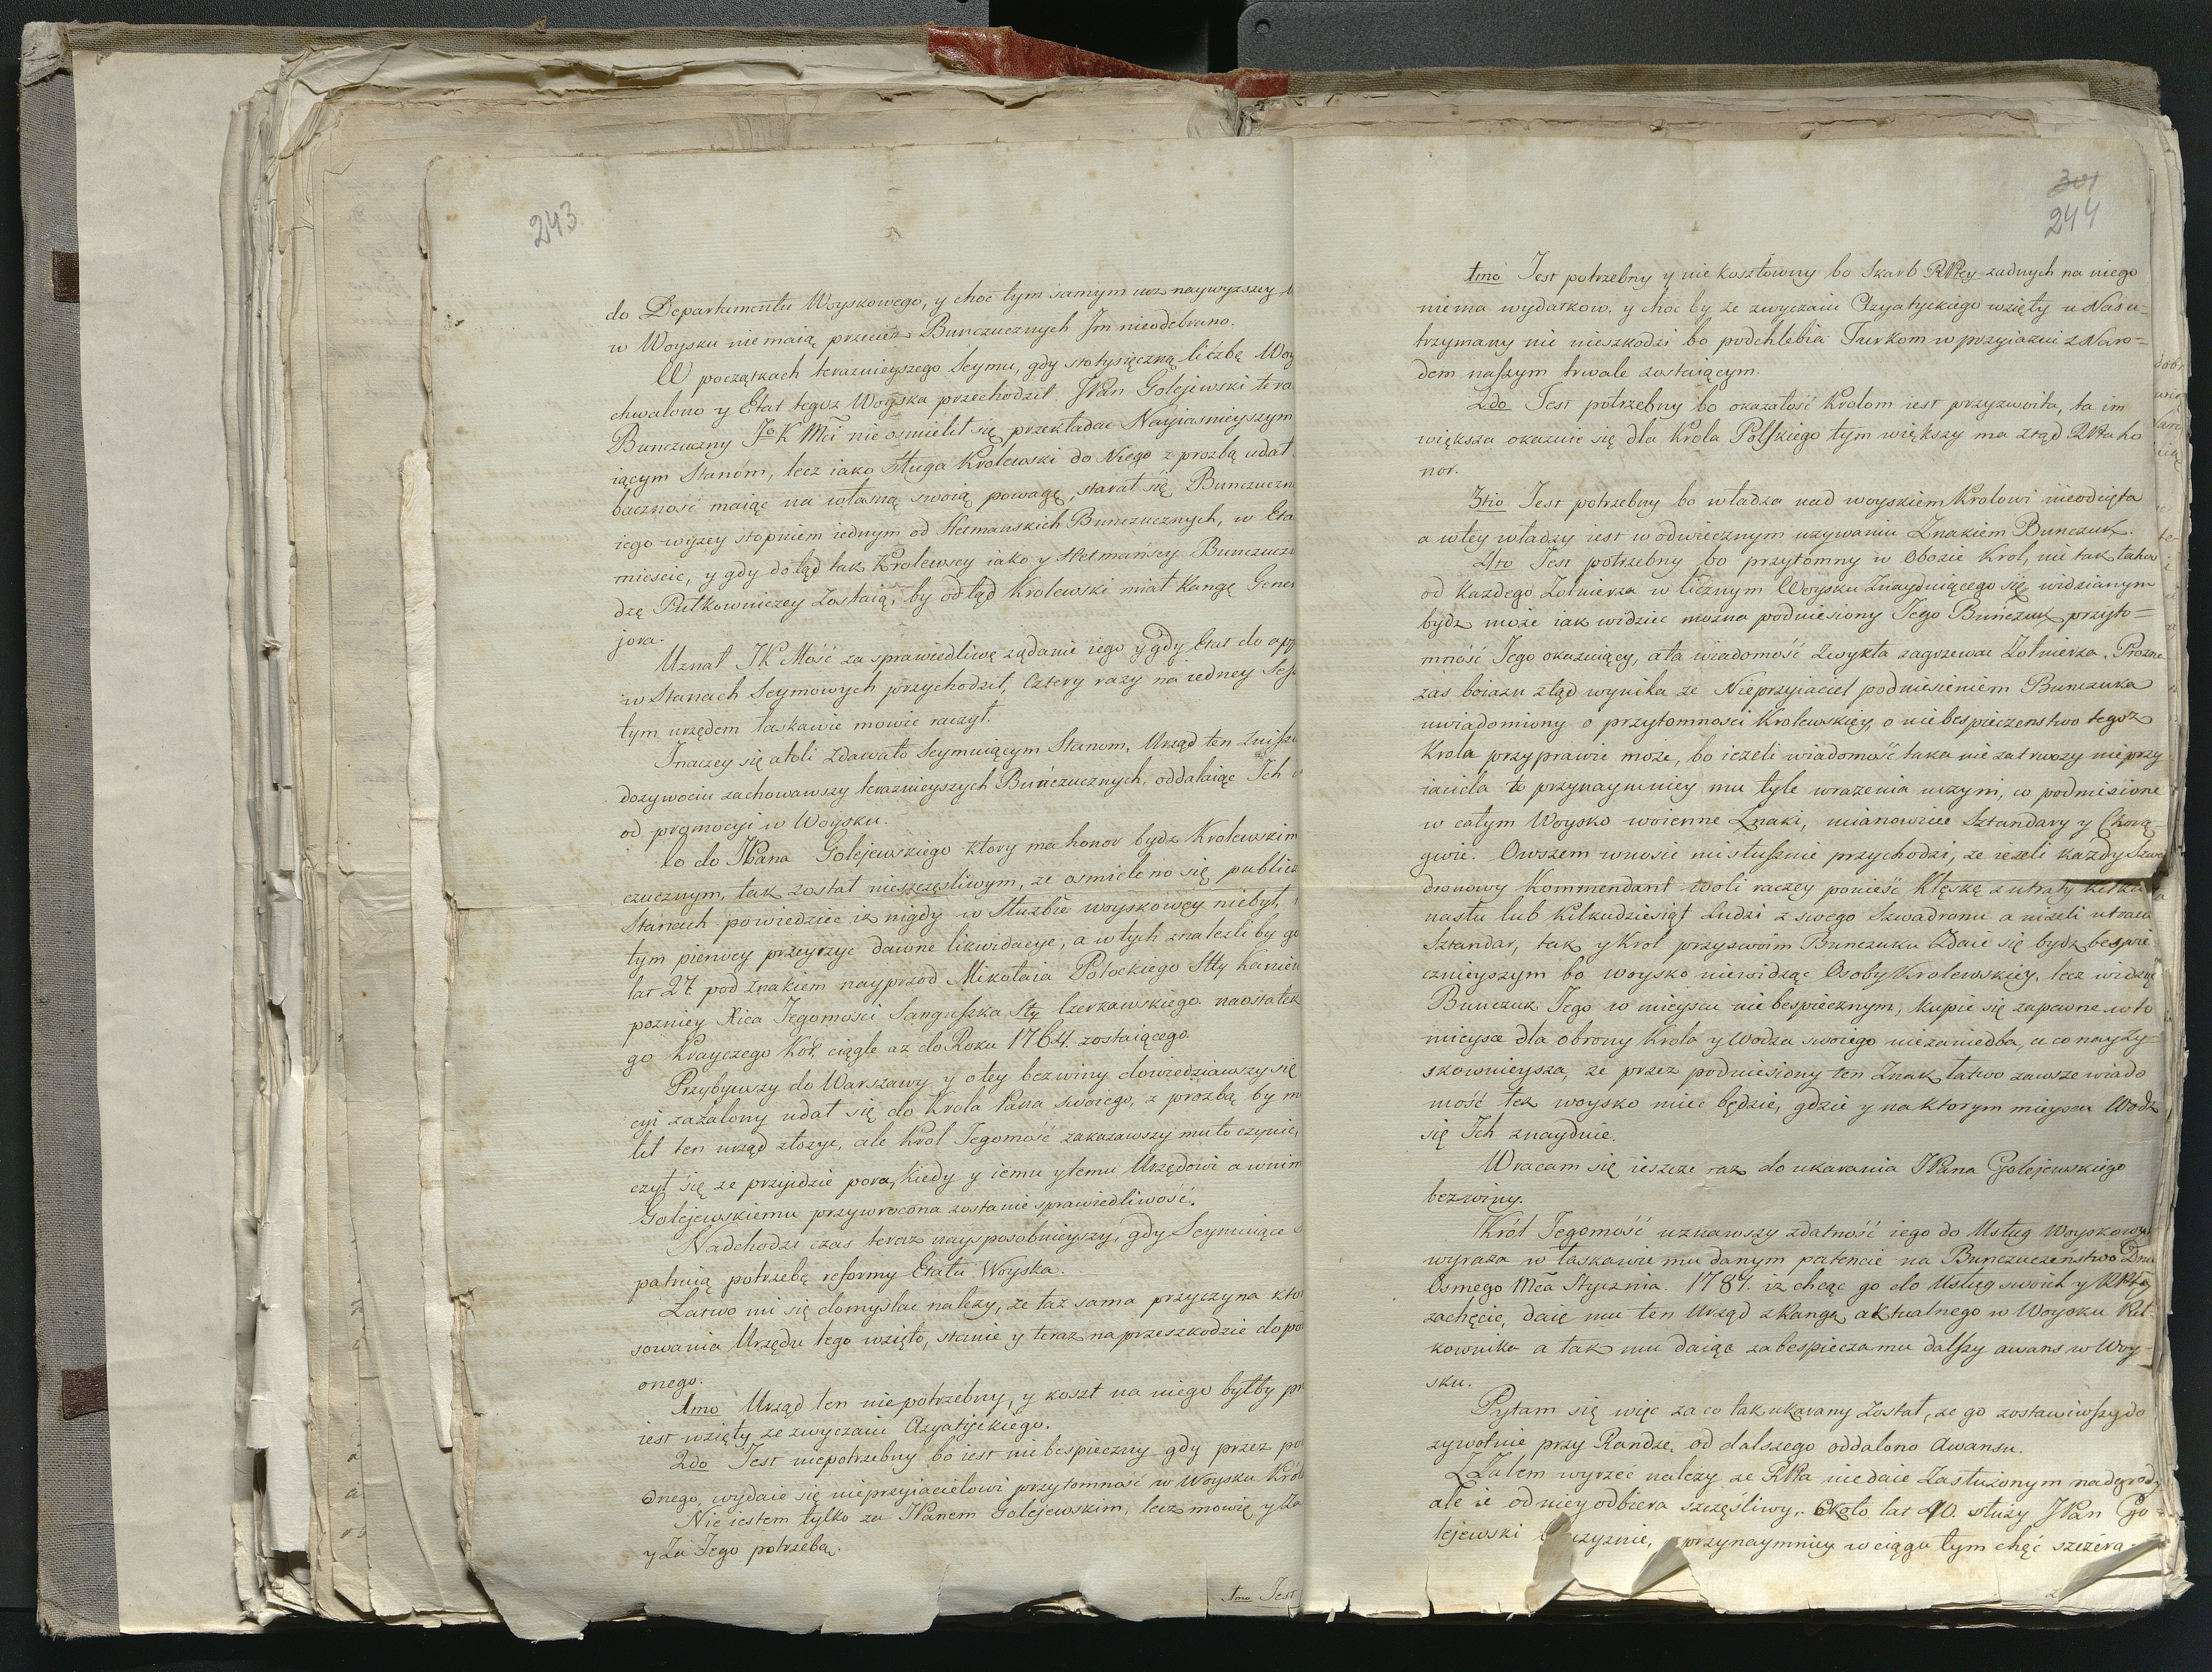 243.
do Departamentu Woyskowego, y choc tym samym
w Woysku nie maią przecież Bunczucznych Im nieodebrano.
W początkach teraznieyszego Seymu, gdy stotysięczną liczbę Woy
chwalono y Etat tegoz Woyska przechodził JPan Golejewski tera
Bunczuczny JoK Mci nie osmielił się przekładac Nayiasnieyszym
iącym Stanóm, lecz iako Sługa Krolewski do Niego z prozbą udał
baczność maiąc na własną swoią powagę, starał się Bunczuczn
iego wyzey stopniem iednym od Hetmanskich Bunczucznych, w Eta
miescic, y gdy dotąd tak Krolewscy iako y Hetmańscy Bunczucz
dzę Pułkowniczey zostaią, by odtąd Krolewski miał Rangę Gener
jora.
Uznał JK Mość za sprawiedliwe ządanie iego y gdy Etat do app
w Stanach Seymowych przychodził, cztery razy na iedney Sess
tym urzędem łaskawie mowic raczył.
Inaczey się atoli zdawało Seymuiącym Stanom, Urząd ten
dozywociu zachowawszy teraznieyszych Buńczucznych, oddalaiąc Ich
od promocyi w Woysku.
Co do JPana Golejewskiego ktory ma honor bydz Krolewskim
czucznym, tak został nieszczęsliwym, ze osmielono się publicz
Stanach powiedziec iz nigdy w Służbie woyskowey niebył,
tym pierwey przeyrzyc dawne likwidacye, a w tych znalezli by go
lat 27 pod znakiem nayprzod Mikołaia Potockiego Stty Kanien
pozniey Xica Jegomosci Sanguszka Stty Czerkawskiego naostatek
go Krayczego Kor. ciągle az do Roku 1764. zostaiącego.
Przybywszy do Warszawy y o tey bezwiny dowiedziawszy się
cyi zażalony udał się do Krola Pana swoiego, z prozbą by m
lił ten urząd złozyc, ale Krol Jegomość zakazawszy mu to czynić,
czył się ze przyidzie pora, kiedy y iemu y temu Urzędowi a wnim
Golejewskiemu przywrocona zostanie sprawiedliwość.
Nadchodzi czas teraz naysposobnieyszy, gdy Seymuiące
patruią potrzebę reformy Etatu Woyska.
Łatwo mi się domyslac nalezy, ze taż sama przyczyna kto
sowania Urzędu tego wzięto, stanie y teraz na przeszkodzie do po
onego.
1mo Urząd ten niepotrzebny, y koszt na niego byłby pr
iest wzięty ze zwyczaiu Azyatyckiego.
2do Jest niepotrzebny bo iest niebespieczny gdy przez po
onego, wydaie się nieprzyiacielowi przytomność w Woysku Kró
Nie iestem tylko za JPanem Golejewskim, lecz mowię y Za
y Za Jego potrzebą.
1mo Jest
301
244
1mo Jest potrzebny y nie kosztowny bo Skarb RPltey zadnych na niego
niema wydatkow, y choc by ze zwyczaiu Azyatyckiego wzięty u Nas u=
trzymany nic nieszkodzi bo podchlebia Turkom w przyiaźni z Naro=
dem naszym trwale zostaiącym.
2do Jest potrzebny bo okazałość Krolom iest przyzwoita, ta im
większa okazuie się dla Krola Polskiego tym większy ma ztąd RPlta ho
nor.
3tio Jest potrzebny bo władza nad woyskiem Krolowi nieodcięta
a w tey władzy iest w odwiecznym uzywaniu Znakiem Bunczuk.
4to Jest potrzebny bo przytomny w Obozie Krol, nie tak łatwo
od Kazdego Zołnierza w licznym Woysku Znayduiącego się widzianym
bydz może iak widziec mozna podniesiony Jego Buńczuk przyto=
mność Jego okazuiący, a ta wiadomość zwykła zagrzewac Zołnierza. Prozna
zas boiazn ztąd wynika ze Nieprzyiaciel podniesieniem Bunczuka
uwiadomiony o przytomnosci Krolewskiey, o niebespieczenstwo tegoz
Krola przyprawic może, bo iezeli wiadomość taka nie zatrwozy nieprzy
iaciela to przynaymniey mu tyle wrazenia uczyni, co podniesione
w całym Woysko woienne Znaki, mianowicie Sztandary y Chorą=
gwie. Owszem wnosic mi słusznie przychodzi, ze iezeli kazdy Szwa
dronowy Kommendant woli raczey ponieść Klęskę z utraty kilku
nastu lub kilkudziesiąt Ludzi z swego Szwadronu a nizeli utracic
Sztandar, tak y Krol przyswoim Bunczuku Zdaie się bydz bespie
cznieyszym bo woysko niewidząc Osoby Krolewskiey, lecz widząc
Bunczuk Jego w mieyscu niebespiecznym, kupic się zapewne w to
mieysce dla obrony Krola y Wodza swoiego niezaniedba, a co nayzy=
skownieysza, ze przez podniesiony ten Znak łatwo zawsze wiado
mość też woysko miec będzie, gdzie y na ktorym mieyscu Wodz
się Ich znayduie.
Wracam się ieszcze raz do ukarania JPana Golejewskiego
bezwiny.
Król Jegomość uznawszy zdatność iego do Usług Woyskowych
wyraza w łaskawie mu danym patencie na Bunczuczeństwo Dnia
Osmego Mca Stycznia 1784. iz chcąc go do Usług swoich y RPltey
zachęcic, daie mu ten Urząd z Rangą aktualnego w Woysku Puł
kownika a tak mu daiąc zabespiecza mu dalszy awans w Woy=
sku.
Pytam się więc za co tak ukarany został, ze go zostawiwszy do
zywotnie przy Randze, od dalszego oddalono Awansu.
Zatem wyrzec nalezy ze RPlta niedaie Zasłużonym nadgrody
ale ie od niey odbiera szczęśliwy. Około lat 40. służy JPan Go=
lejewski przynaymniey w ciągu tym chęć szczéra